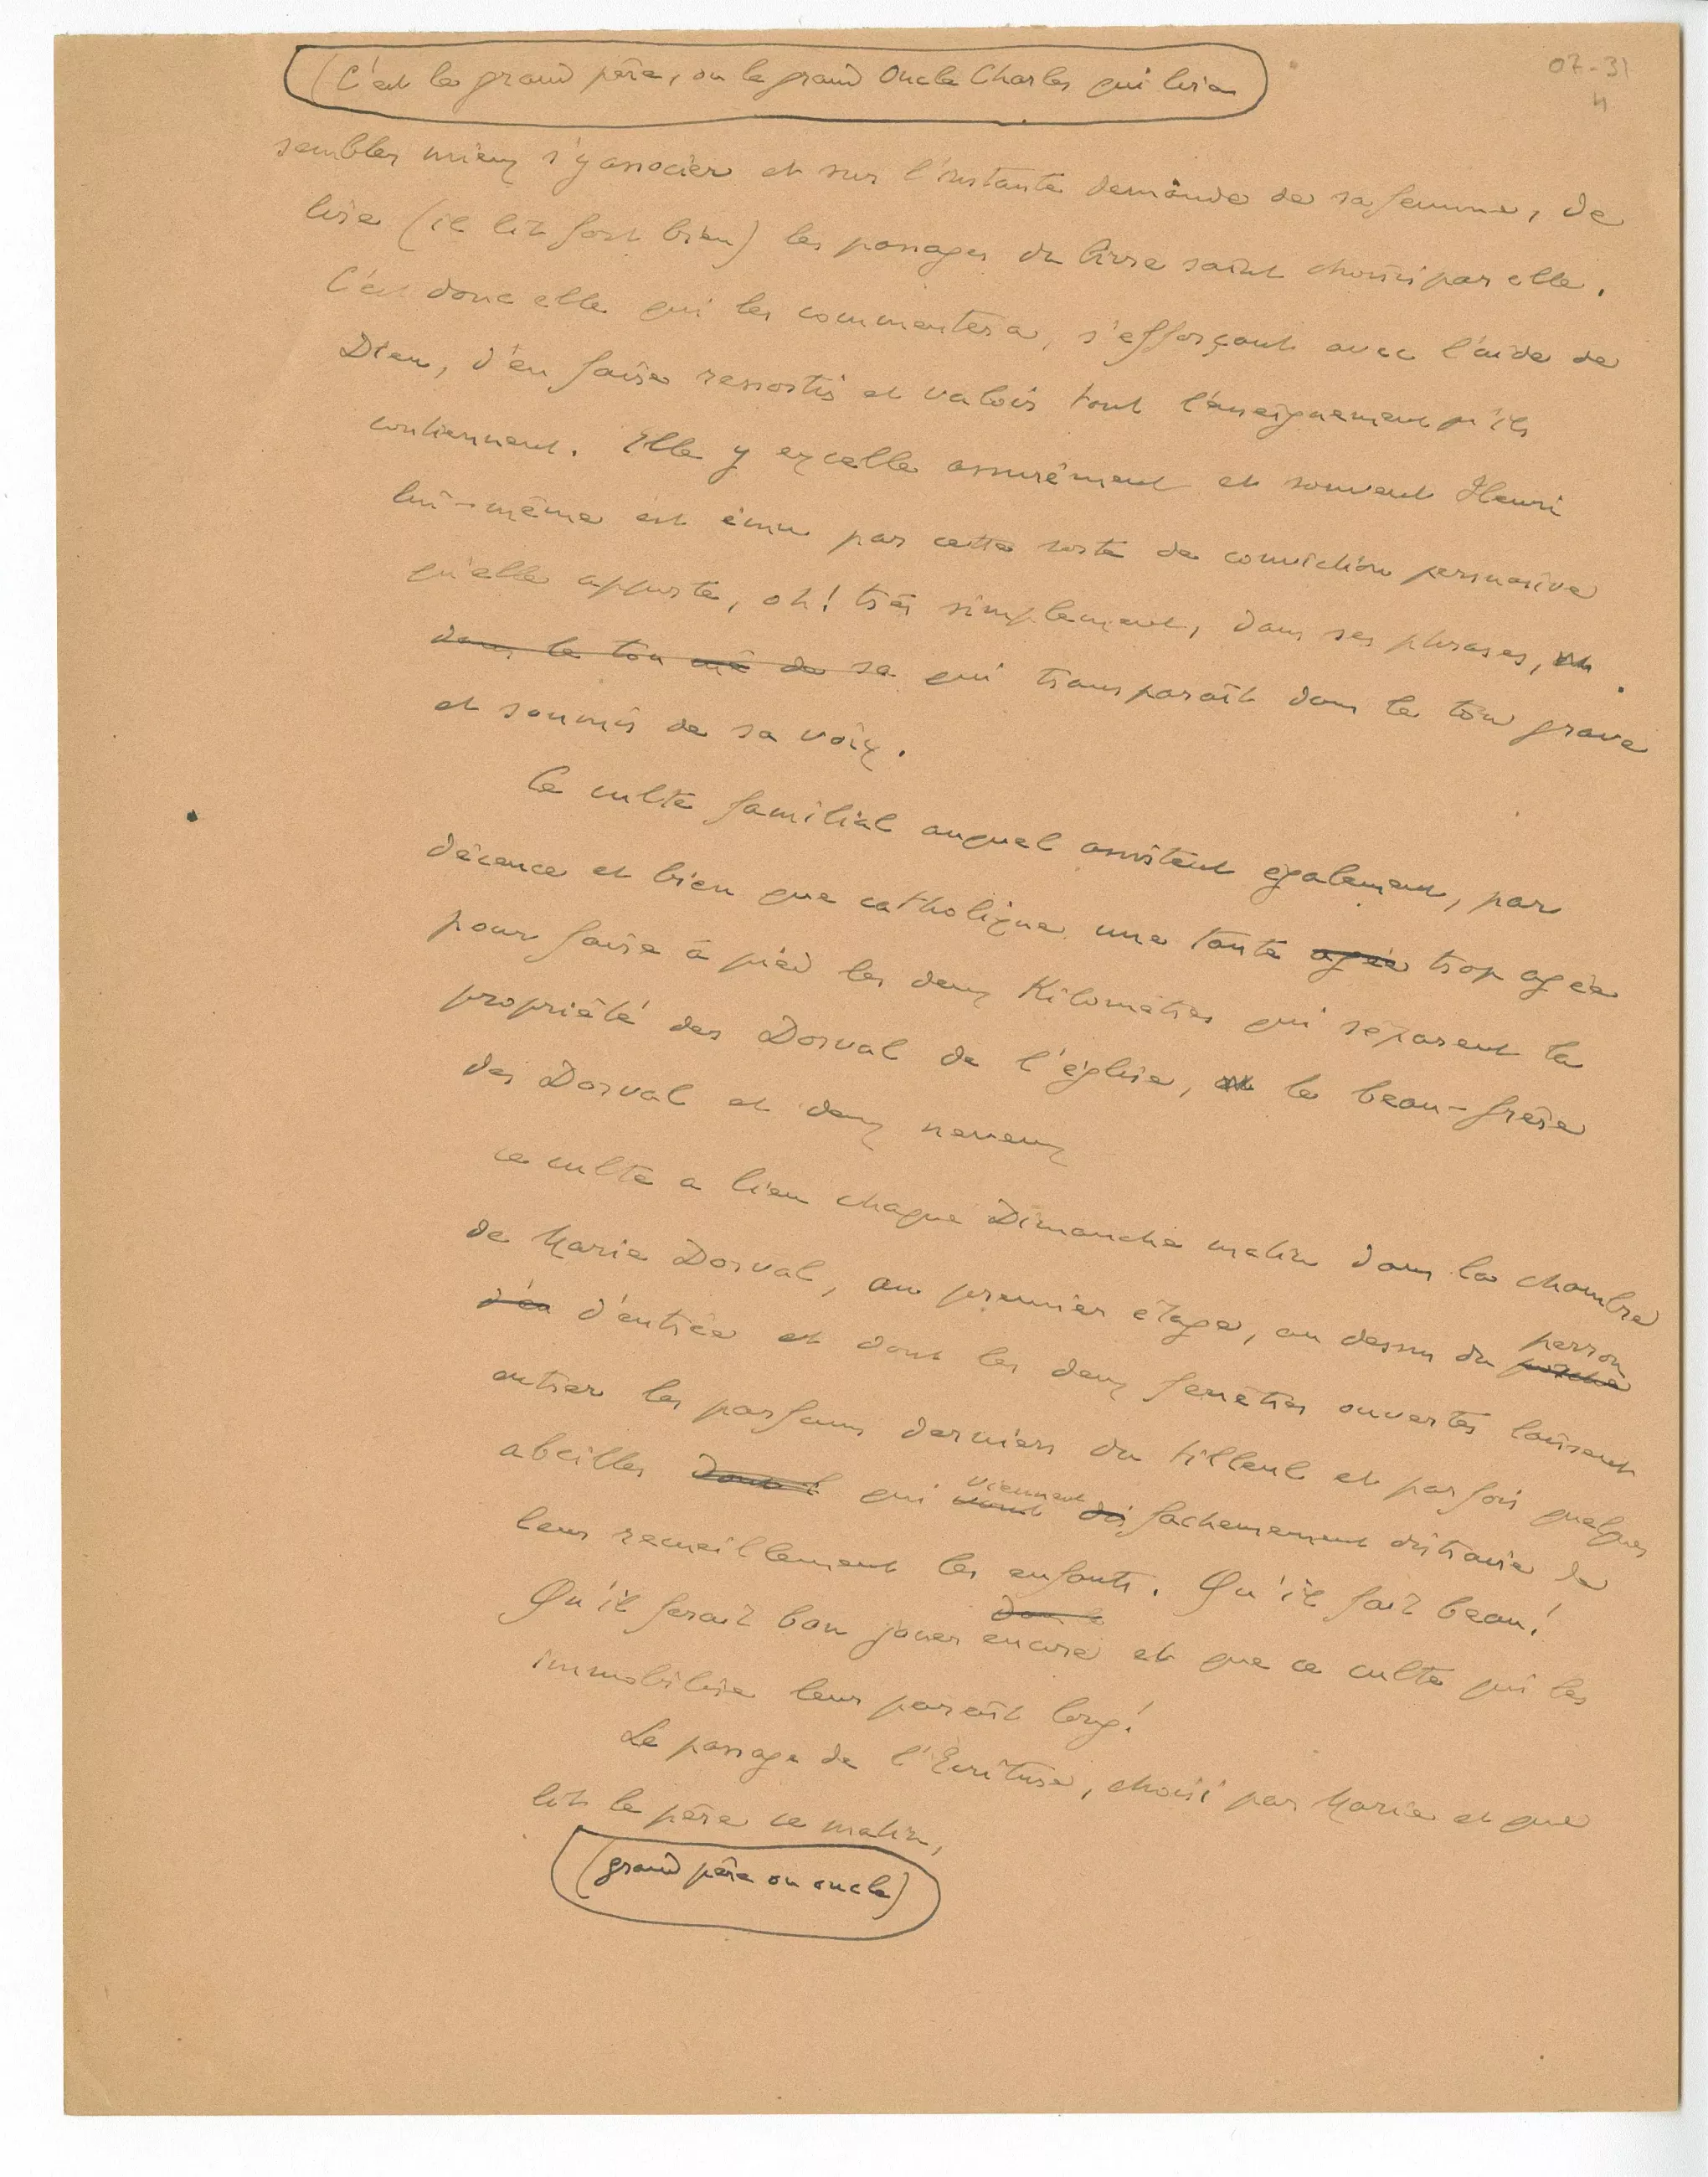 07-31
4
(C'est le grand père, ou le grand Oncle Charles qui lira
sembler mieux s'y associer et sur l'instante demande de sa femme, de
lire (il lit fort bien) les passages du livre saint choisis par elle.
C'est donc elle qui les commentera, s'efforçant avec l'aide de
Dieu, d'en faire ressortir et valoir tout l'enseignement qu'ils
contiennent. Elle y excelle assurément et souvent Henri
lui-même est ému par cette sorte de conviction persuasive
qu'elle apporte, oh! très simplement, dans ses phrases,
dans le ton mê de sa qui transparaît dans le ton grave
et soumis de sa voix.
Ce culte familial auquel assistent également, par
décence et bien que catholique une tante agée trop agée
pour faire à pied les deux Kilomètres qui séparent la
propriété des Dorval de l'église, et le beau-frère
des Dorval et deux neveux
ce culte a lieu chaque Dimanche matin dans la chambre
de Marie Dorval, au premier étage, au dessus du porche perron
d'en d'entrée et dont les deux fenêtres ouvertes laissent
entrer les parfums derniers du tilleul et parfois quelques
abeilles dont l qui vont viennent dis fachemement distraire de
leur recueillement les enfants. Qu'il fait beau!
Qu'il ferait bon jouer dans l encore et que ce culte qui les
immobilise leur paraît long!
Le passage de l'Ecriture, choisi par Marie et que
lit le père ce matin,
(grand père ou oncle)